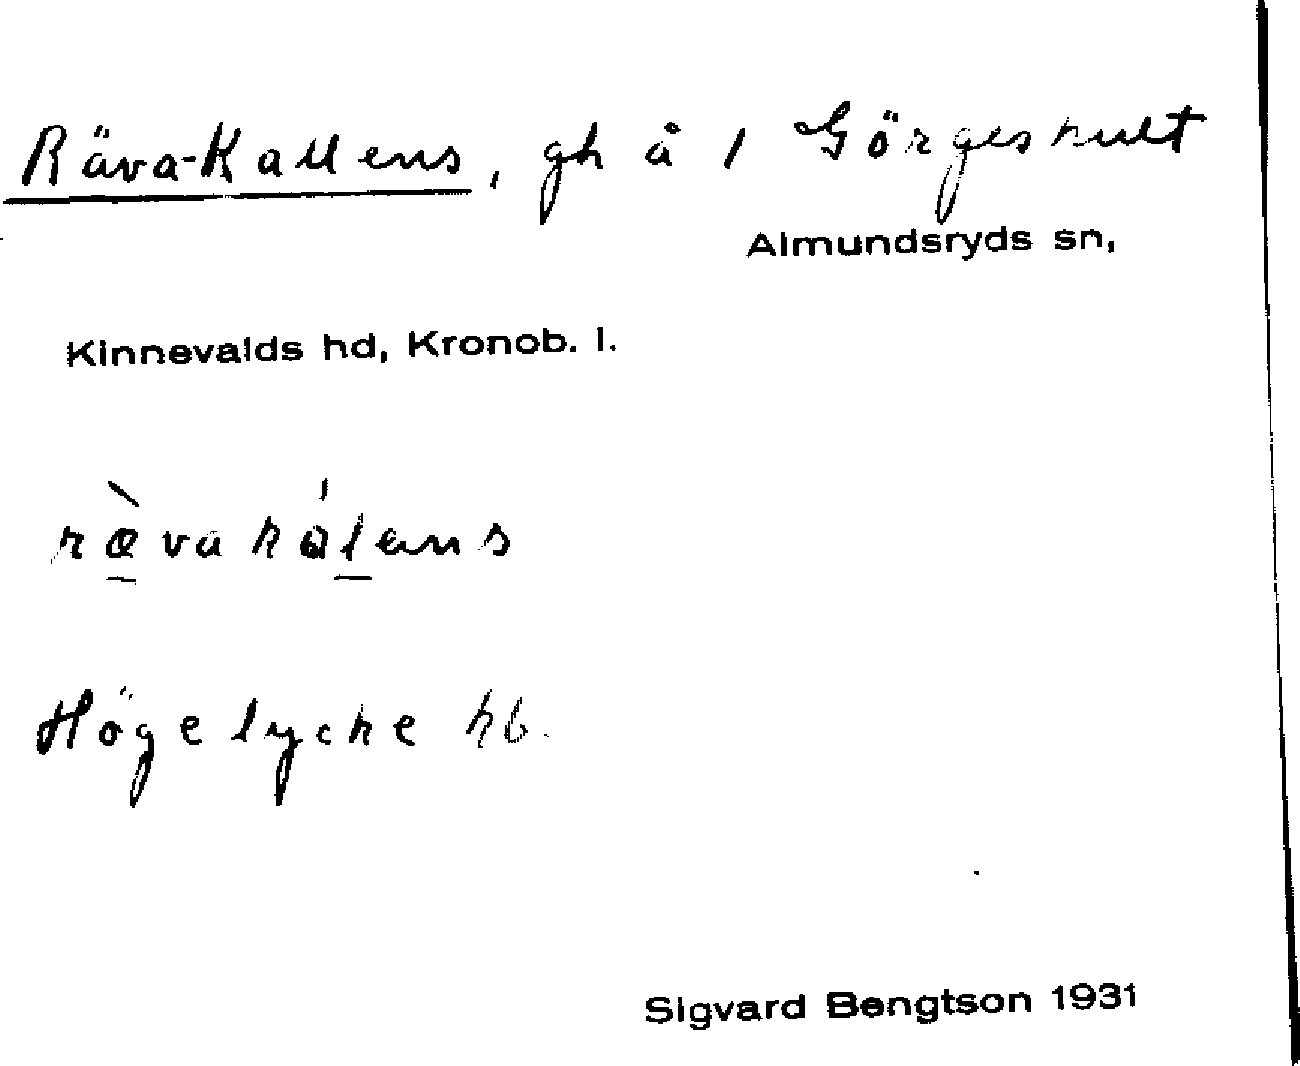 Räva-Kallens, gh å 1 Görgeshult
Almundsryds sn,
Kinnevalds hd, Kronob. l.
Högelycke hb.
Sigvard Bengtson 1931